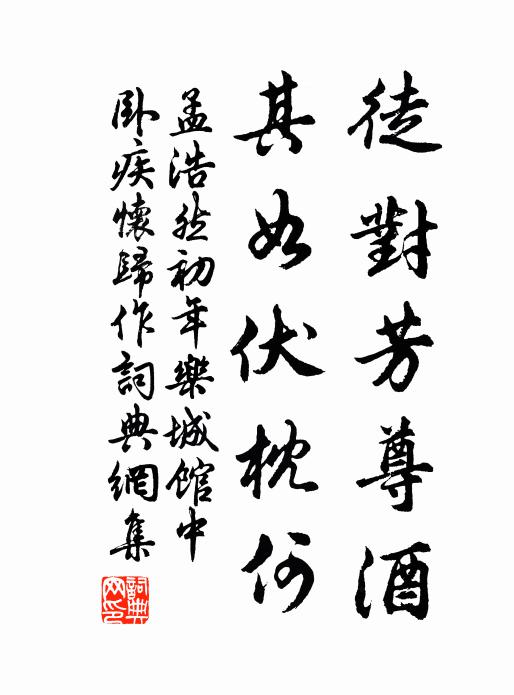 徒對芳尊酒
其如伏枕何
孟浩然初年樂城館中
臥疾懷歸作詞典網集
詞典网印